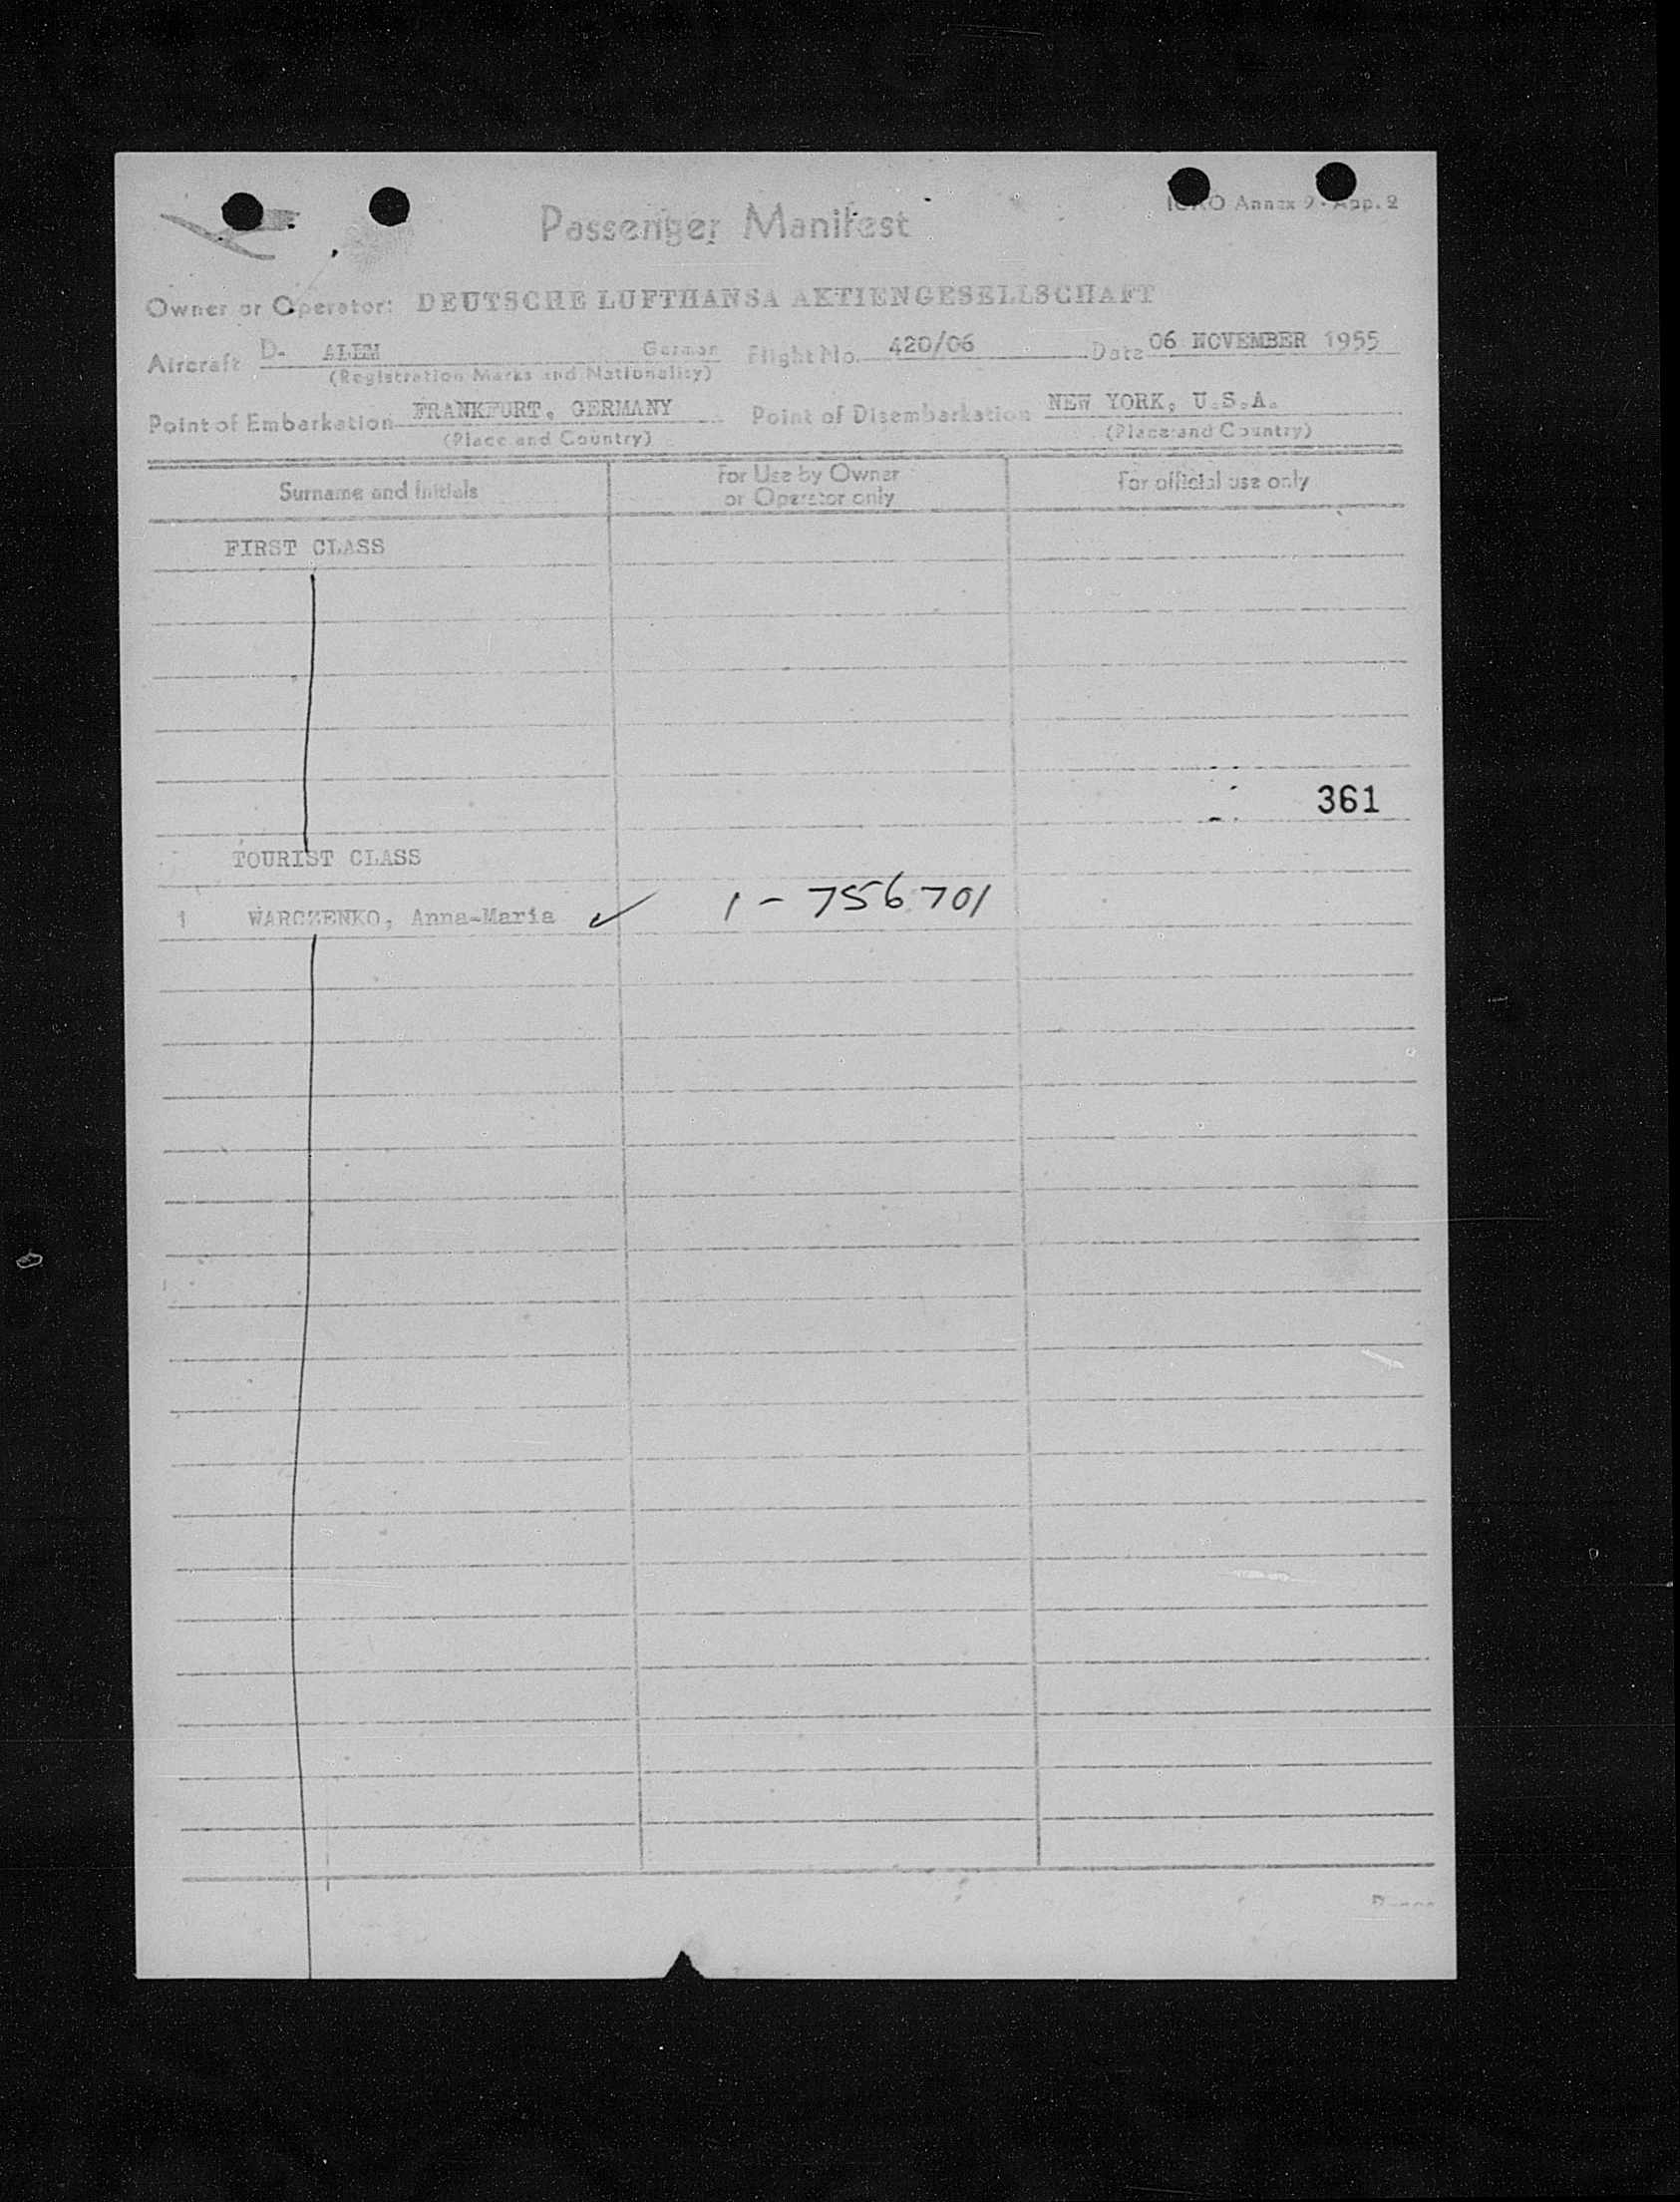 Passenger Manifest
ICAO Annex 9 - App. 2
Owner or Operator: DEUTSCHE LUFTHANSA AKTIENGESELLSCHAFT
Aircraft D- ALEM German Flight No. 420/06 Date 06 NOVEMBER 1955
(Registration Marks and Nationality)
Point of Embarkation FRANKFURT, GERMANY Point of Disembarkation NEW YORK, U.S.A.
(Place and Country) (Place and Country)
Surname and Initials For Use by Owner or Operator only For official use only
FIRST CLASS
361
TOURIST CLASS
1 WARCZENKO, Anna-Maria ✓ 1-756701